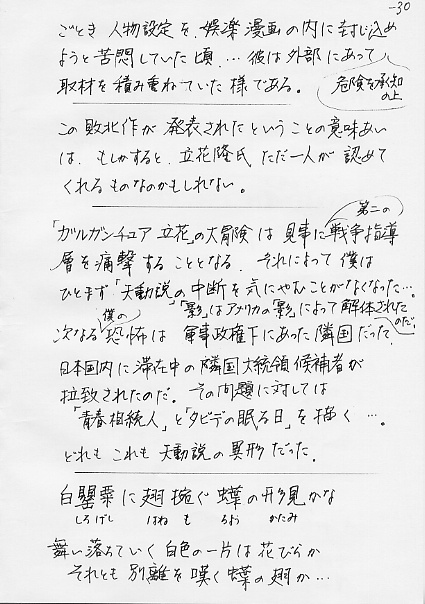 -30
ごとき 人物設定を、娯楽漫画の内に封じ込め
ようと苦悶していた頃、… 彼は外部にあって
危険を承知の上
取材を積み重ねていた様である。
この敗北作が 発表されたということの意味あい
は、もしかすると、立花隆氏 ただ一人が 認めて
くれるものなのかもしれない。
第二の
「ガルガンチュア 立花」の大冒険は 見事に戦争指導
層を痛撃することとなる、それによって僕は
ひとまず「天動説」の中断を気にやむことがなくなった…。
「影」はアメリカの「影」によって解体された
のだ。
僕の
次なる恐怖は 軍事政権下にあった隣国だった
日本国内に滞在中の隣国大統領候補者が
拉致されたのだ。その問題に対しては
「青春相続人」と「タビデの眠る日」を描く …。
どれも これも 天動説の異形だった。
白罌粟に 翅 捥ぐ 蝶の形見かな
しろげし はね も ちょう かたみ
舞い落ちていく白色の一片は花びらか
それとも 別離を嘆く蝶の翅か…